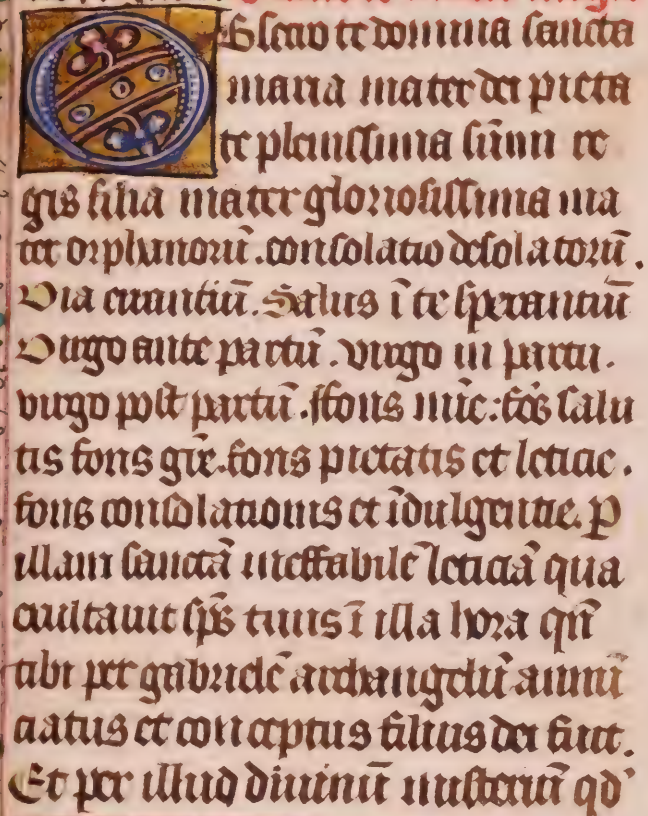 Obsecro te domina sancta
maria mater dei pieta
te plenissima sũmi re
gis filia mater gloriosissima ma
ter orphanorũ. consolatio desolatorũ.
Via errantiũ. Salus ĩ te sperantiũ
Virgo ante partũ. virgo in partu.
virgo post partũ. ffons mĩe: fõs salu
tis fons grẽ. fons pietatis et leticie.
fons consolationis et ĩdulgentie. P̱
illam sanctã ineffabilẽ leticiã qua
exultauit sp̃s tuus ĩ illa hora qñ
tibi per gabrielẽ archangelũ annũ
ciatus et conceptus filius dei fuit.
Et per illud diuinũ misteriũ qd'